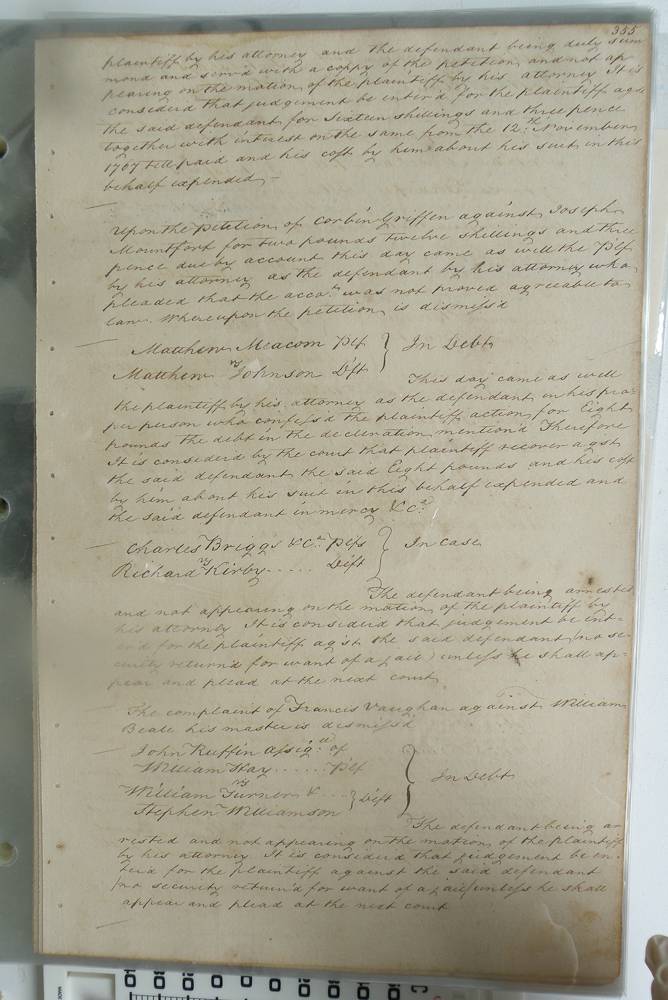 355
plaintiff by his attorney and the defendant being duly sum
mond and serv'd with a coppy of the petition, and not ap
pearing on the motion of the plaintiff by his attorney It is
considerd that judgement be enter'd for the plaintiff agst
the said defendant for sixteen shillings and three pence
together with interest on the same from the 12th November
1767 till paid and his cost by him about his suit in this
behalf expended —
Upon the Petition of Corbin Griffen against Joseph
Mountfort for two pounds twelve shillings and three
pence due by account this day came as well the Plf
by his attorney as the defendant by his attorney who
pleaded that the accot. was not proved agreeable to
law. Whereupon the petition is dismiss'd
Matthew Meacom Plf } In Debt
vs
Matthew Johnson Dift
This day came as well
the plaintiff by his attorney as the defendant in his pro=
per person who confess'd the plaintiff action for Eight
pounds the debt in the decleration mention'd Therefore
It is considerd by the court that plaintiff recover agst
the said defendant the said Eight pounds and his cost
by him about his suit in this behalf expended and
the said defendant in mercy &Ca.
Charles Briggs &Ca. Plfs } In Case
vs
Richard Kirby ..... Dift
The defendant being arrested
and not appearing on the motion of the plaintiff by
his attorney It is considerd that judgement be ent-
er'd for the plaintiff agst the said defendant (no se-
curity return'd for want of a bail) unless he shall ap=
pear and plead at the next court
The complaint of Francis Vaughan against William
Beale his master is dismiss'd
John Ruffin assige. of
William Hay ...... Plf } In Debt
vs
William Turner & ... } Dift
Stephen Williamson
The defendant being ar
rested and not appearing on the motion of the plaintiff
by his attorney It is considerd that judgement be en-
ter'd for the plaintiff against the said defendant
(no security return'd for want of a bail) unless he shall
appear and plead at the next court